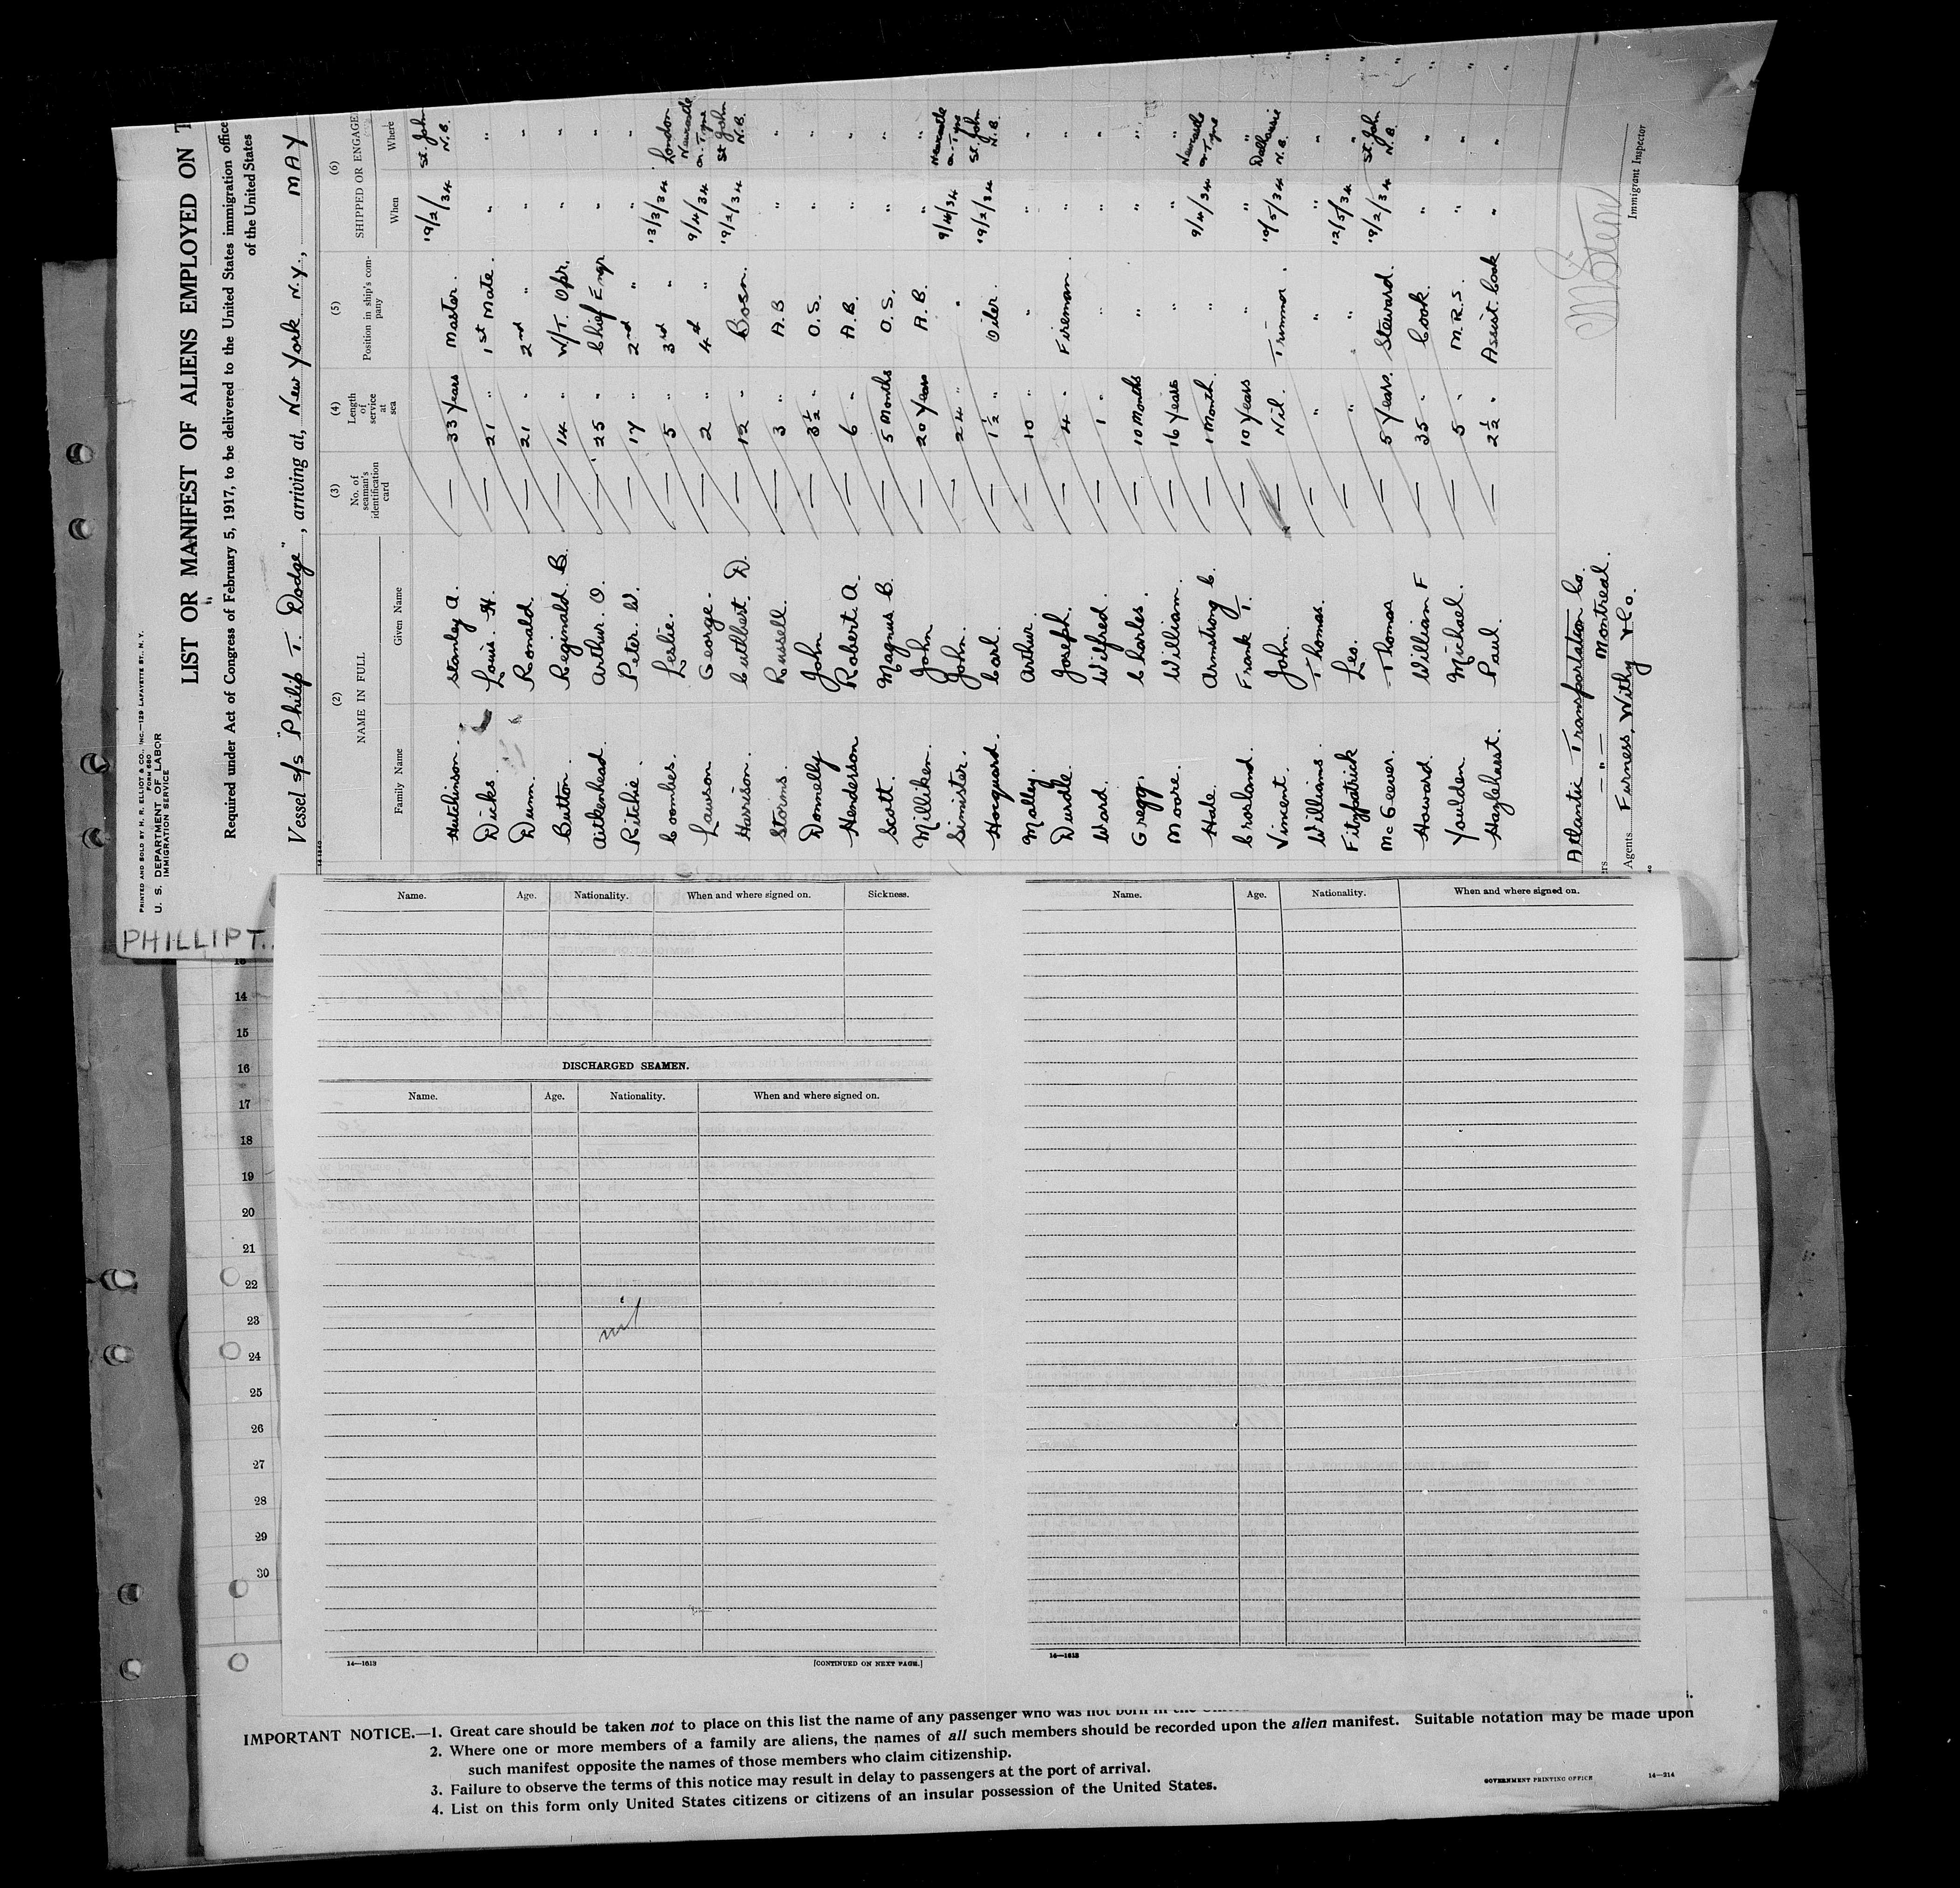 PRINTED AND SOLD BY H. R. ELLIOT & CO., INC.—129 LAFAYETTE ST., N. Y.
FORM 680
U. S. DEPARTMENT OF LABOR
IMMIGRATION SERVICE
LIST OR MANIFEST OF ALIENS EMPLOYED ON T
Required under Act of Congress of February 5, 1917, to be delivered to the United States immigration office
of the United States
Vessel s/s "Philip T. Dodge", arriving at, New York N.Y., MAY
(2) (3) (4) (5) (6)
NAME IN FULL No. of seaman's identification card Length of service at sea Position in ship's company SHIPPED OR ENGAGE
Family Name Given Name When Where
Hutchinson. Stanley A. — 33 Years Master. 19/2/34 St. John N.B.
Dicks. Louis. H. — 21 " 1st Mate. " "
Dunn. Ronald. — 21 " 2nd " " "
Button. Reginald. B. — 14 " W/T. Opr. " "
Aitkenhead. Arthur. O. — 25 " Chief Engr " "
Ritchie. Peter. W. — 17 " 2nd " " "
Coombes. Leslie. — 5 " 3rd " 13/3/34 London
Lawson George. — 2 " 4th " 9/4/34 Newcastle on-Tyne
Harrison. Cuthbert. D. — 12 " Bosn. 19/2/34 St John N.B.
Storms. Russell. — 3 " A.B " "
Donnelly John — 3½ " O.S. " "
Henderson Robert A. — 6 " A.B. " "
Scott. Magnus B. — 5 Months O.S. " "
Milliken. John — 20 Years A.B. " "
Simister. John. — 24 " " 9/4/34 Newcastle on-Tyne
Hocquard. Carl. — 1½ " Oiler. 19/2/34 St. John N.B.
Malley. Arthur. — 10 " " " "
Durdle. Joseph. — 4 " Fireman. " "
Ward. Wilfred. — 1 " " " "
Gregg. Charles. — 10 Months " " "
Moore. William. — 16 Years " " "
Hale. Armstrong C. — 1 Month. " 9/4/34 Newcastle on-Tyne
Crosland. Frank T. — 10 Years " " "
Vincent. John. — Nil. Trimmer. 10/5/34 Dalhousie N.B.
Williams. Thomas. — " " " "
Fitzpatrick Leo. — " " 12/5/34 "
McGeever. Thomas — 5 Years. Steward. 19/2/34 St. John N.B.
Howard. William F — 35 " Cook. " "
Youlden Michael. — 5 " M.R.S. " "
Hazlehurst. Paul. — 2½ " Assist. Cook " "
Atlantic Transportation Co.
—"— Montreal.
Agents Furness, Withy & Co.
Immigrant Inspector
PHILLIP T.
Name. Age. Nationality. When and where signed on. Sickness.
DISCHARGED SEAMEN.
Name. Age. Nationality. When and where signed on.
nil
14—1613 [CONTINUED ON NEXT PAGE.]
Name. Age. Nationality. When and where signed on.
14—1613
14
15
16
17
18
19
20
21
22
23
24
25
26
27
28
29
30
IMPORTANT NOTICE.—1. Great care should be taken not to place on this list the name of any passenger who was not born in the
2. Where one or more members of a family are aliens, the names of all such members should be recorded upon the alien manifest. Suitable notation may be made upon
such manifest opposite the names of those members who claim citizenship.
3. Failure to observe the terms of this notice may result in delay to passengers at the port of arrival.
4. List on this form only United States citizens or citizens of an insular possession of the United States.
GOVERNMENT PRINTING OFFICE 14—214